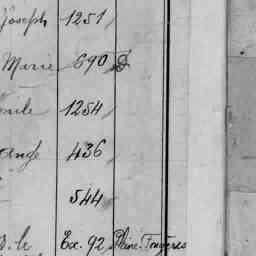 Joseph 1251
Marie 690 D
1254
Ange 436
544
Ex. 92 Pleine-Fougères